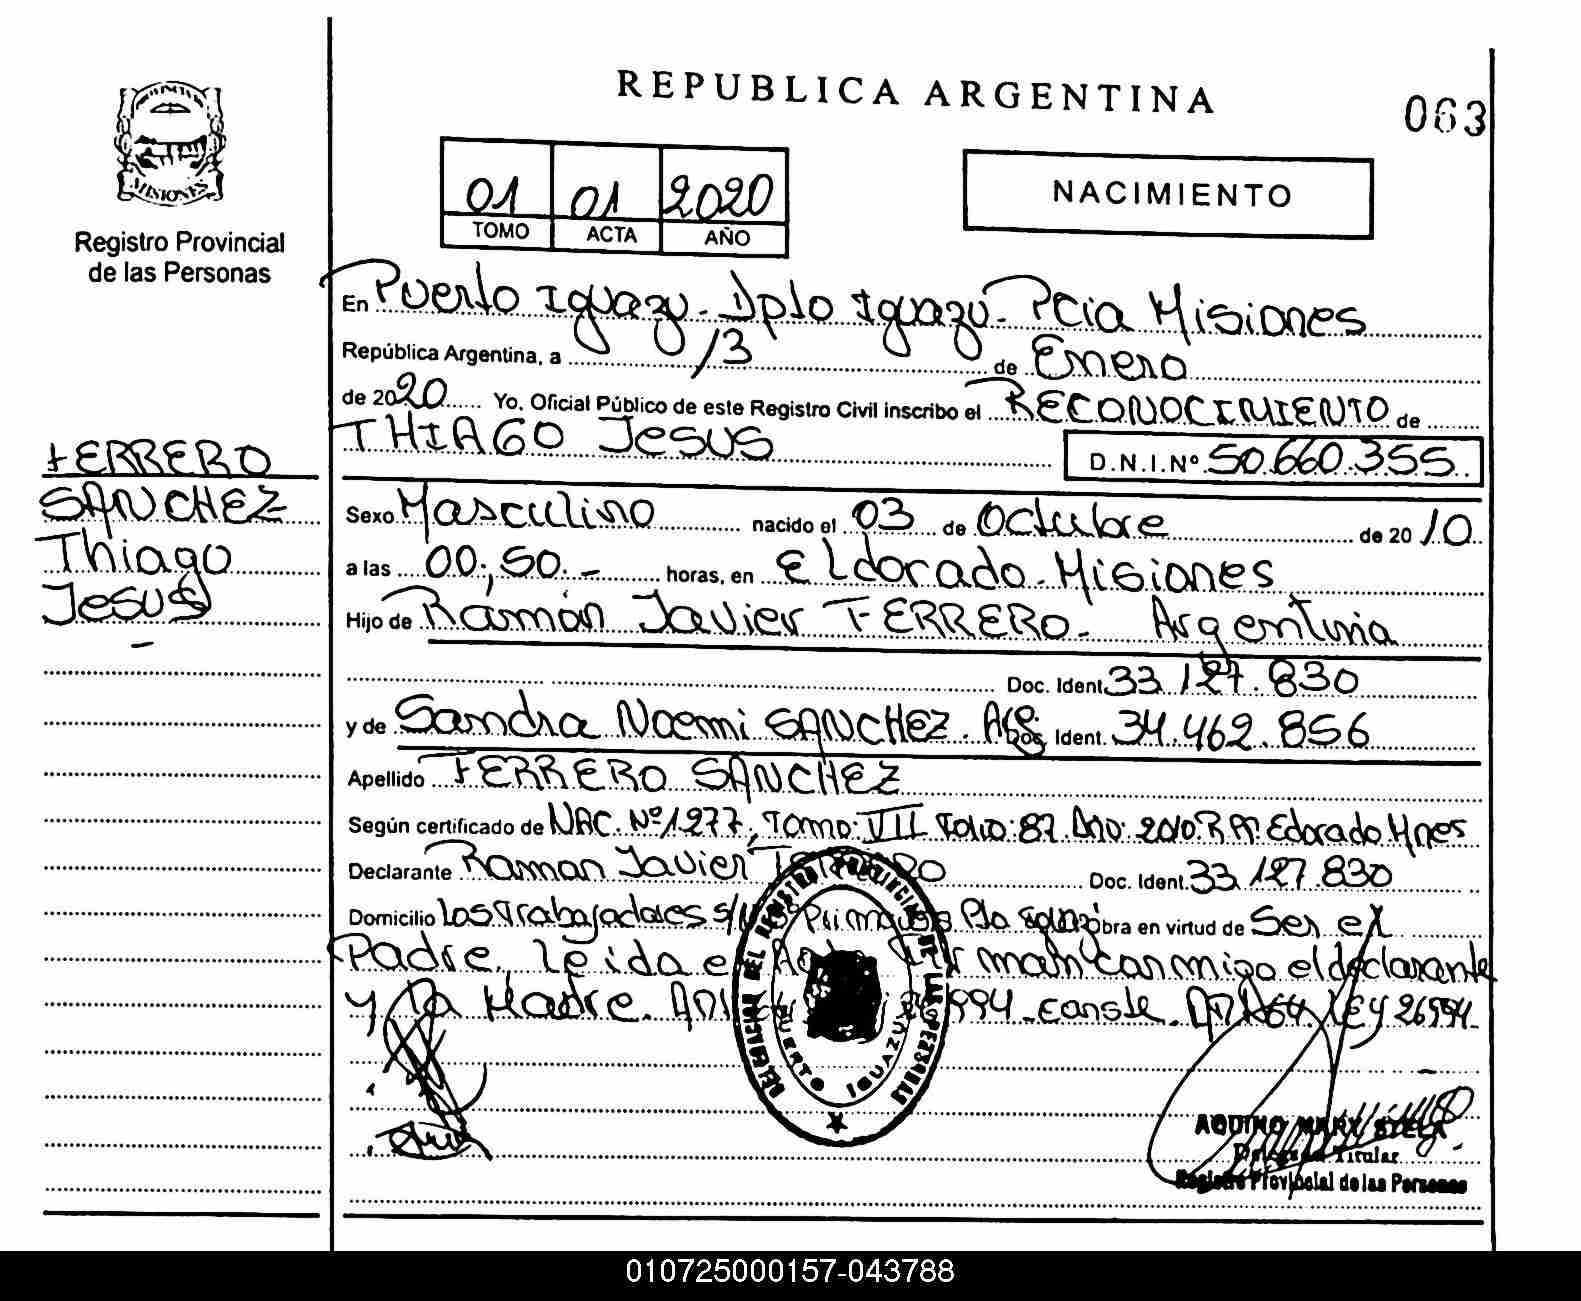 REPUBLICA ARGENTINA
063
MISIONES
Registro Provincial
de las Personas
01 01 2020
TOMO ACTA AÑO
NACIMIENTO
En Puerto Iguazu - Dpto Iguazu - Pcia Misiones
República Argentina, a 13 de Enero
de 2020 Yo, Oficial Público de este Registro Civil inscribo el RECONOCIMIENTO de
THIAGO JESUS D.N.I.Nº 50.660.355
FERRERO
SANCHEZ
Thiago
Jesus
-
Sexo Masculino nacido el 03 de Octubre de 2010
a las 00:,50.- horas, en ELdorado - Misiones
Hijo de Ramón Javier FERRERO - Argentina
Doc. Ident. 33.127.830
y de Sandra Noemi SANCHEZ. Arg. Doc. Ident. 34.462.856
Apellido FERRERO SANCHEZ
Según certificado de NAC. Nº 1277, Tomo: VII Folio: 87 Año: 2010. R.P.P. Edorado Mnes
Declarante Ramon Javier FERRERO Doc. Ident. 33.127.830
Domicilio Los Trabajadores s/ Pto Iguazú Obra en virtud de Ser el
Padre. Leida el Acta firman conmigo el declarante
y la Madre. 26994 - conste. Art 64. LEY 26994-
DELEGACION DEL REGISTRO PROVINCIAL DE LAS PERSONAS
PUERTO IGUAZU
AQUINO MARY STELA
Delegada Titular
Registro Provincial de las Personas
010725000157-043788